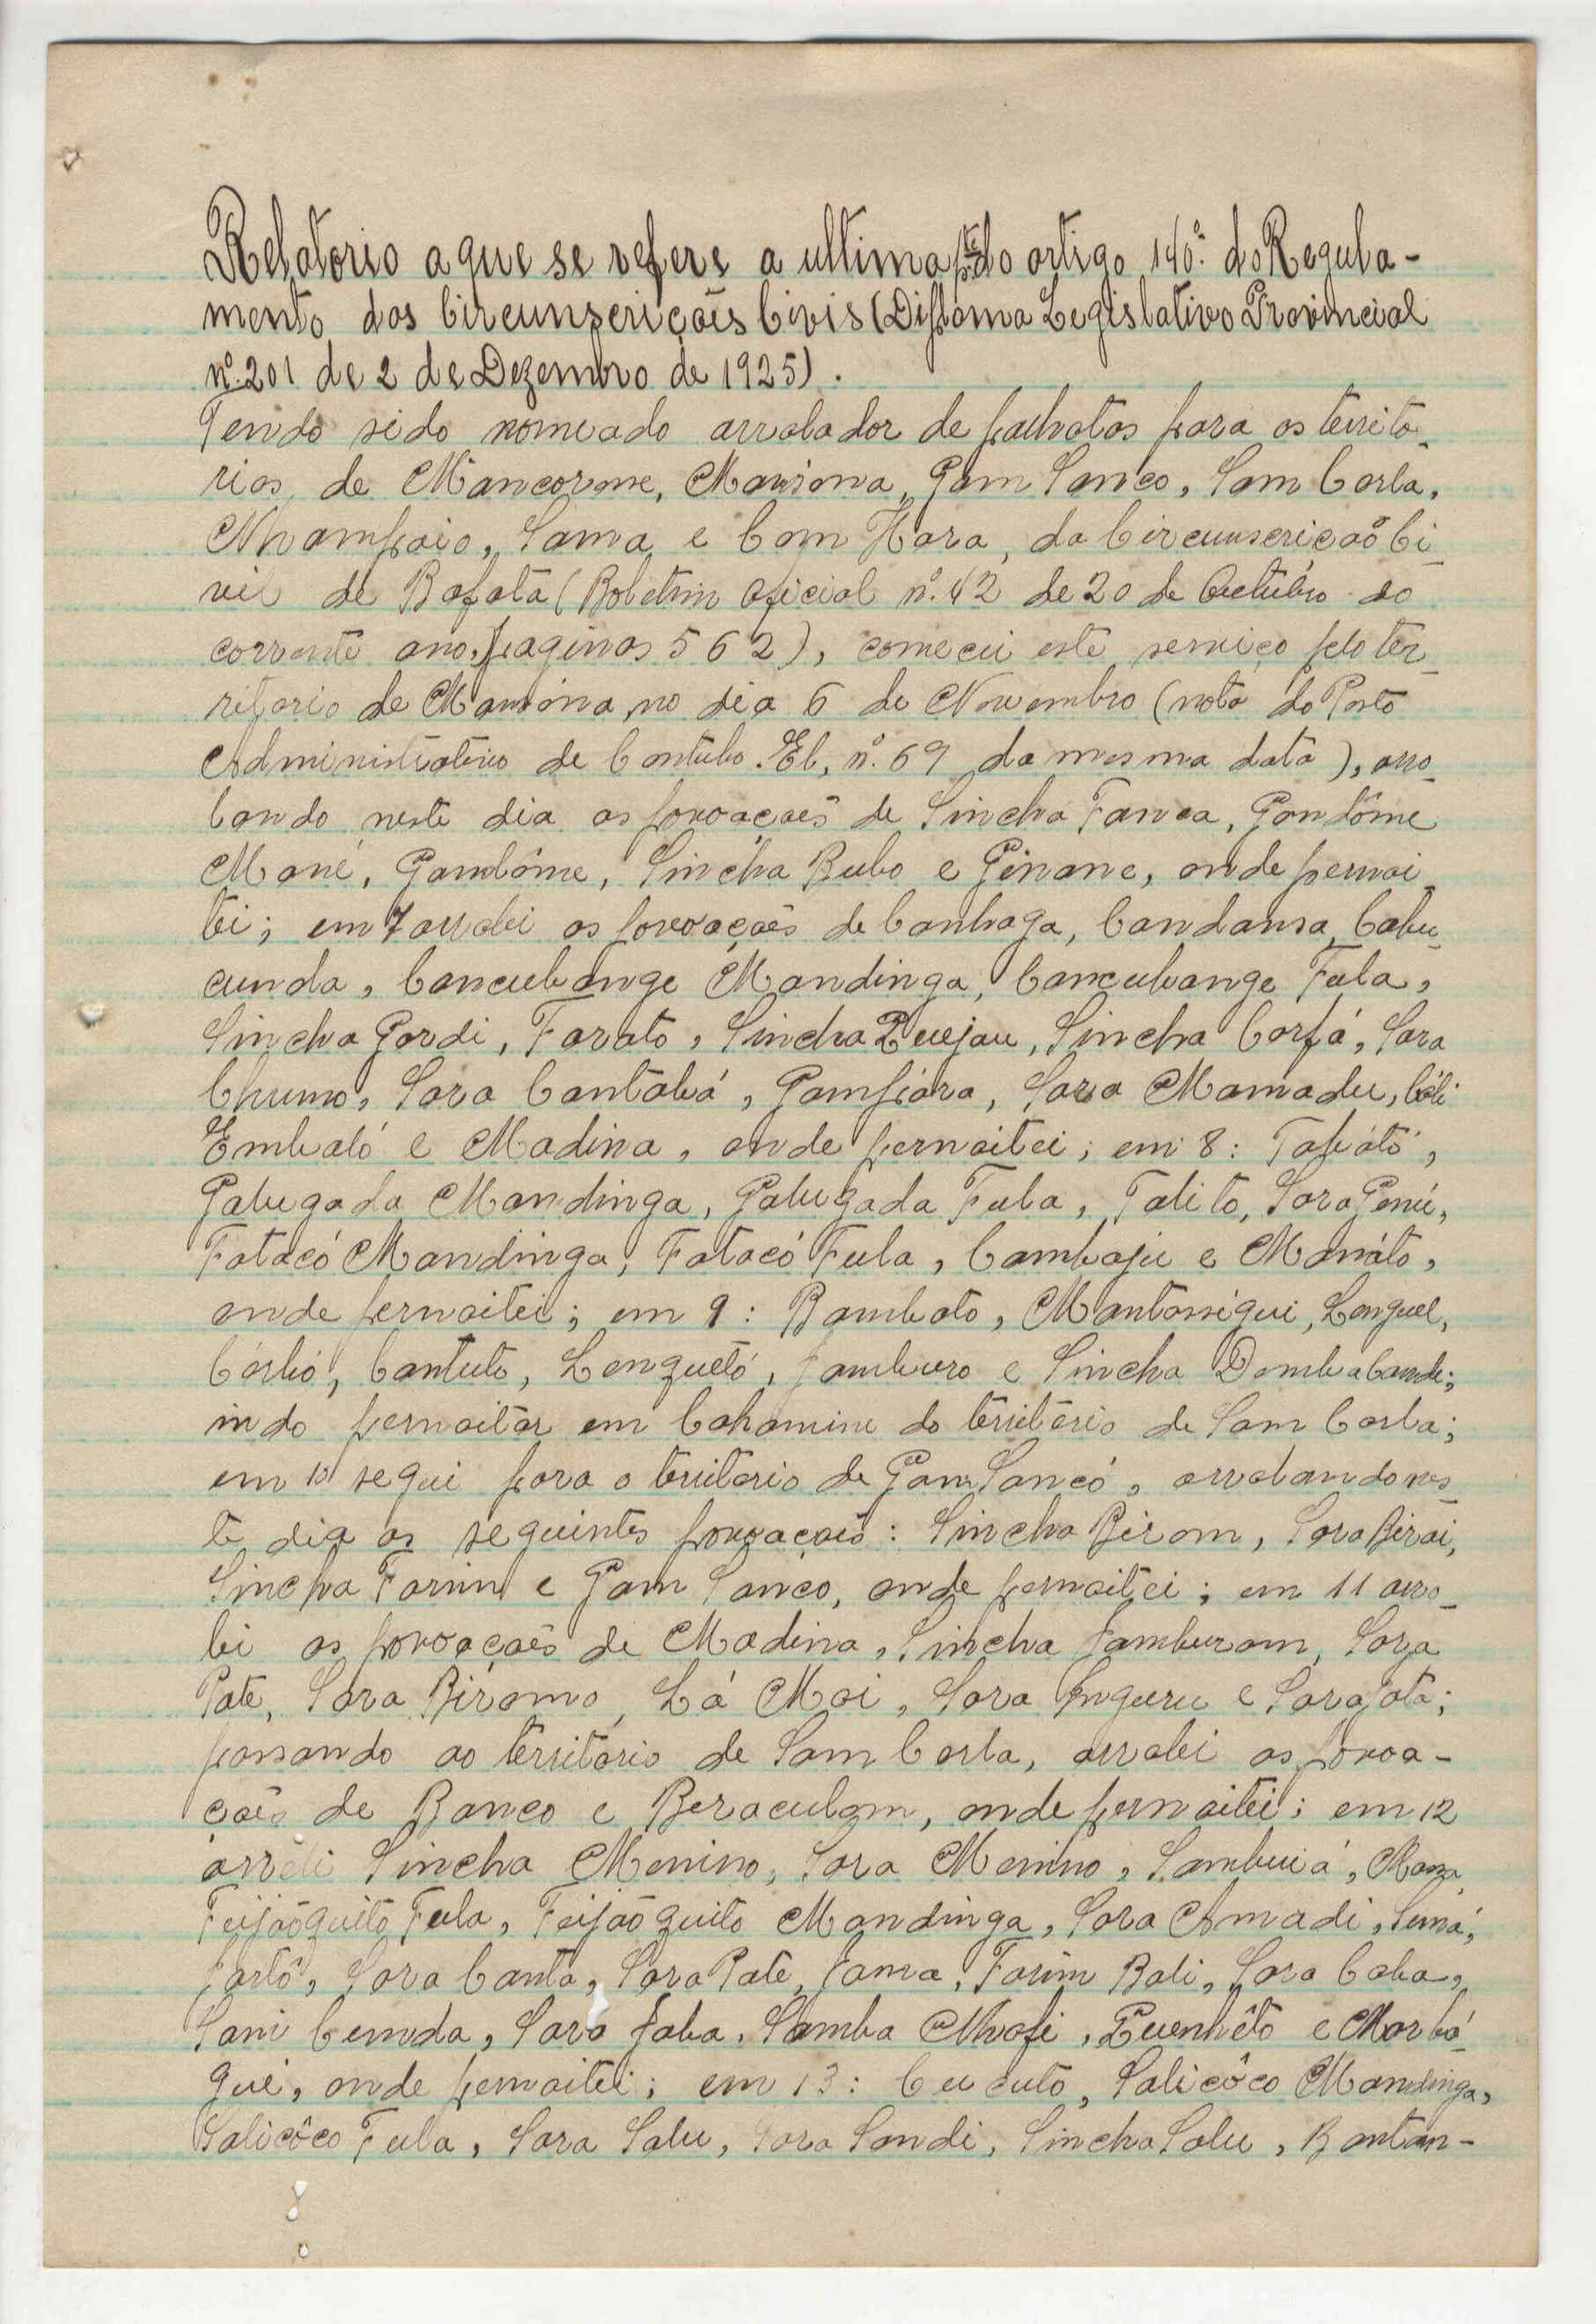 Relatorio a que se refere a ultima pte do artigo 140º do Regula-
mento das Circunscrições Civis (Diploma Legislativo Provincial
nº 201 de 2 de Dezembro de 1925).
Tendo sido nomeado arrolador de palhotas para os territó-
rios de Mancorosse, Mansona, Gam Sanco, Sam Corla,
Nhampaio, Sama e Com Hara, da Circunscrição Ci-
vil de Bafatá (Boletim Oficial nº 42 de 20 de Outubro do
corrente ano, paginas 562), comecei este serviço pelo ter-
ritorio de Mansona, no dia 6 de Novembro (nota do Posto
Administrativo de Contubo-El, nº 69 da mesma data), arro-
lando neste dia as povoações de Sincha Fanca, Gandôme
Mané, Gandôme, Sincha Bubo e Ginane, onde pernoi-
tei; em 7 arrolei as povoações de Canhaga, Candansa, Cabu-
cunda, Canculange Mandinga, Canculange Fula,
Sincha Gordi, Farato, Sincha Quejau, Sincha Corfá, Sara
Chumo, Sara Cantabá, Gampára, Sara Mamadu, Cóli
Embaló e Madina, onde pernoitei; em 8: Tabató,
Galugada Mandinga, Galugada Fula, Talito, Sara Genú,
Fatacó Mandinga, Fatacó Fula, Cambaju e Manáto,
onde pernoitei; em 9: Bambato, Mantassigui, Lenguel,
Córbó, Cantuto, Lenguetó, Jamburo e Sincha Demba Cande;
indo pernoitar em Cahamine do território de Sam Corla;
em 10 segui para o territorio de Gam Sancó, arrolando nes-
te dia as seguintes povoações: Sincha Birom, Sara Birai,
Sincha Farim e Gam Sanco, onde pernoitei; em 11 arro-
lei as povoações de Madina, Sincha Jamburam, Sara
Pate, Sara Biramo, Lá Mai, Sara Unguru e Sara Jota;
passando ao território de Sam Corla, arrolei as povoa-
ções de Banco e Beraculom, onde pernoitei; em 12
arrolei Sincha Menino, Sara Menino, Sambuiá,
Feijãoquito Fula, Feijãoquito Mandinga, Sara Amadi, Sumá,
Jartô, Sara Canta, Sara Pate, Jama, Farim Bali, Sara Caba,
Sani Cunda, Sara Jaba, Samba Nhafi, Quenhêtô e Marbá-
gué, onde pernoitei; em 13: Cucuto, Salicôco Mandinga,
Salicôco Fula, Sara Salu, Sara Sandi, Sincha Salu, Bantan-